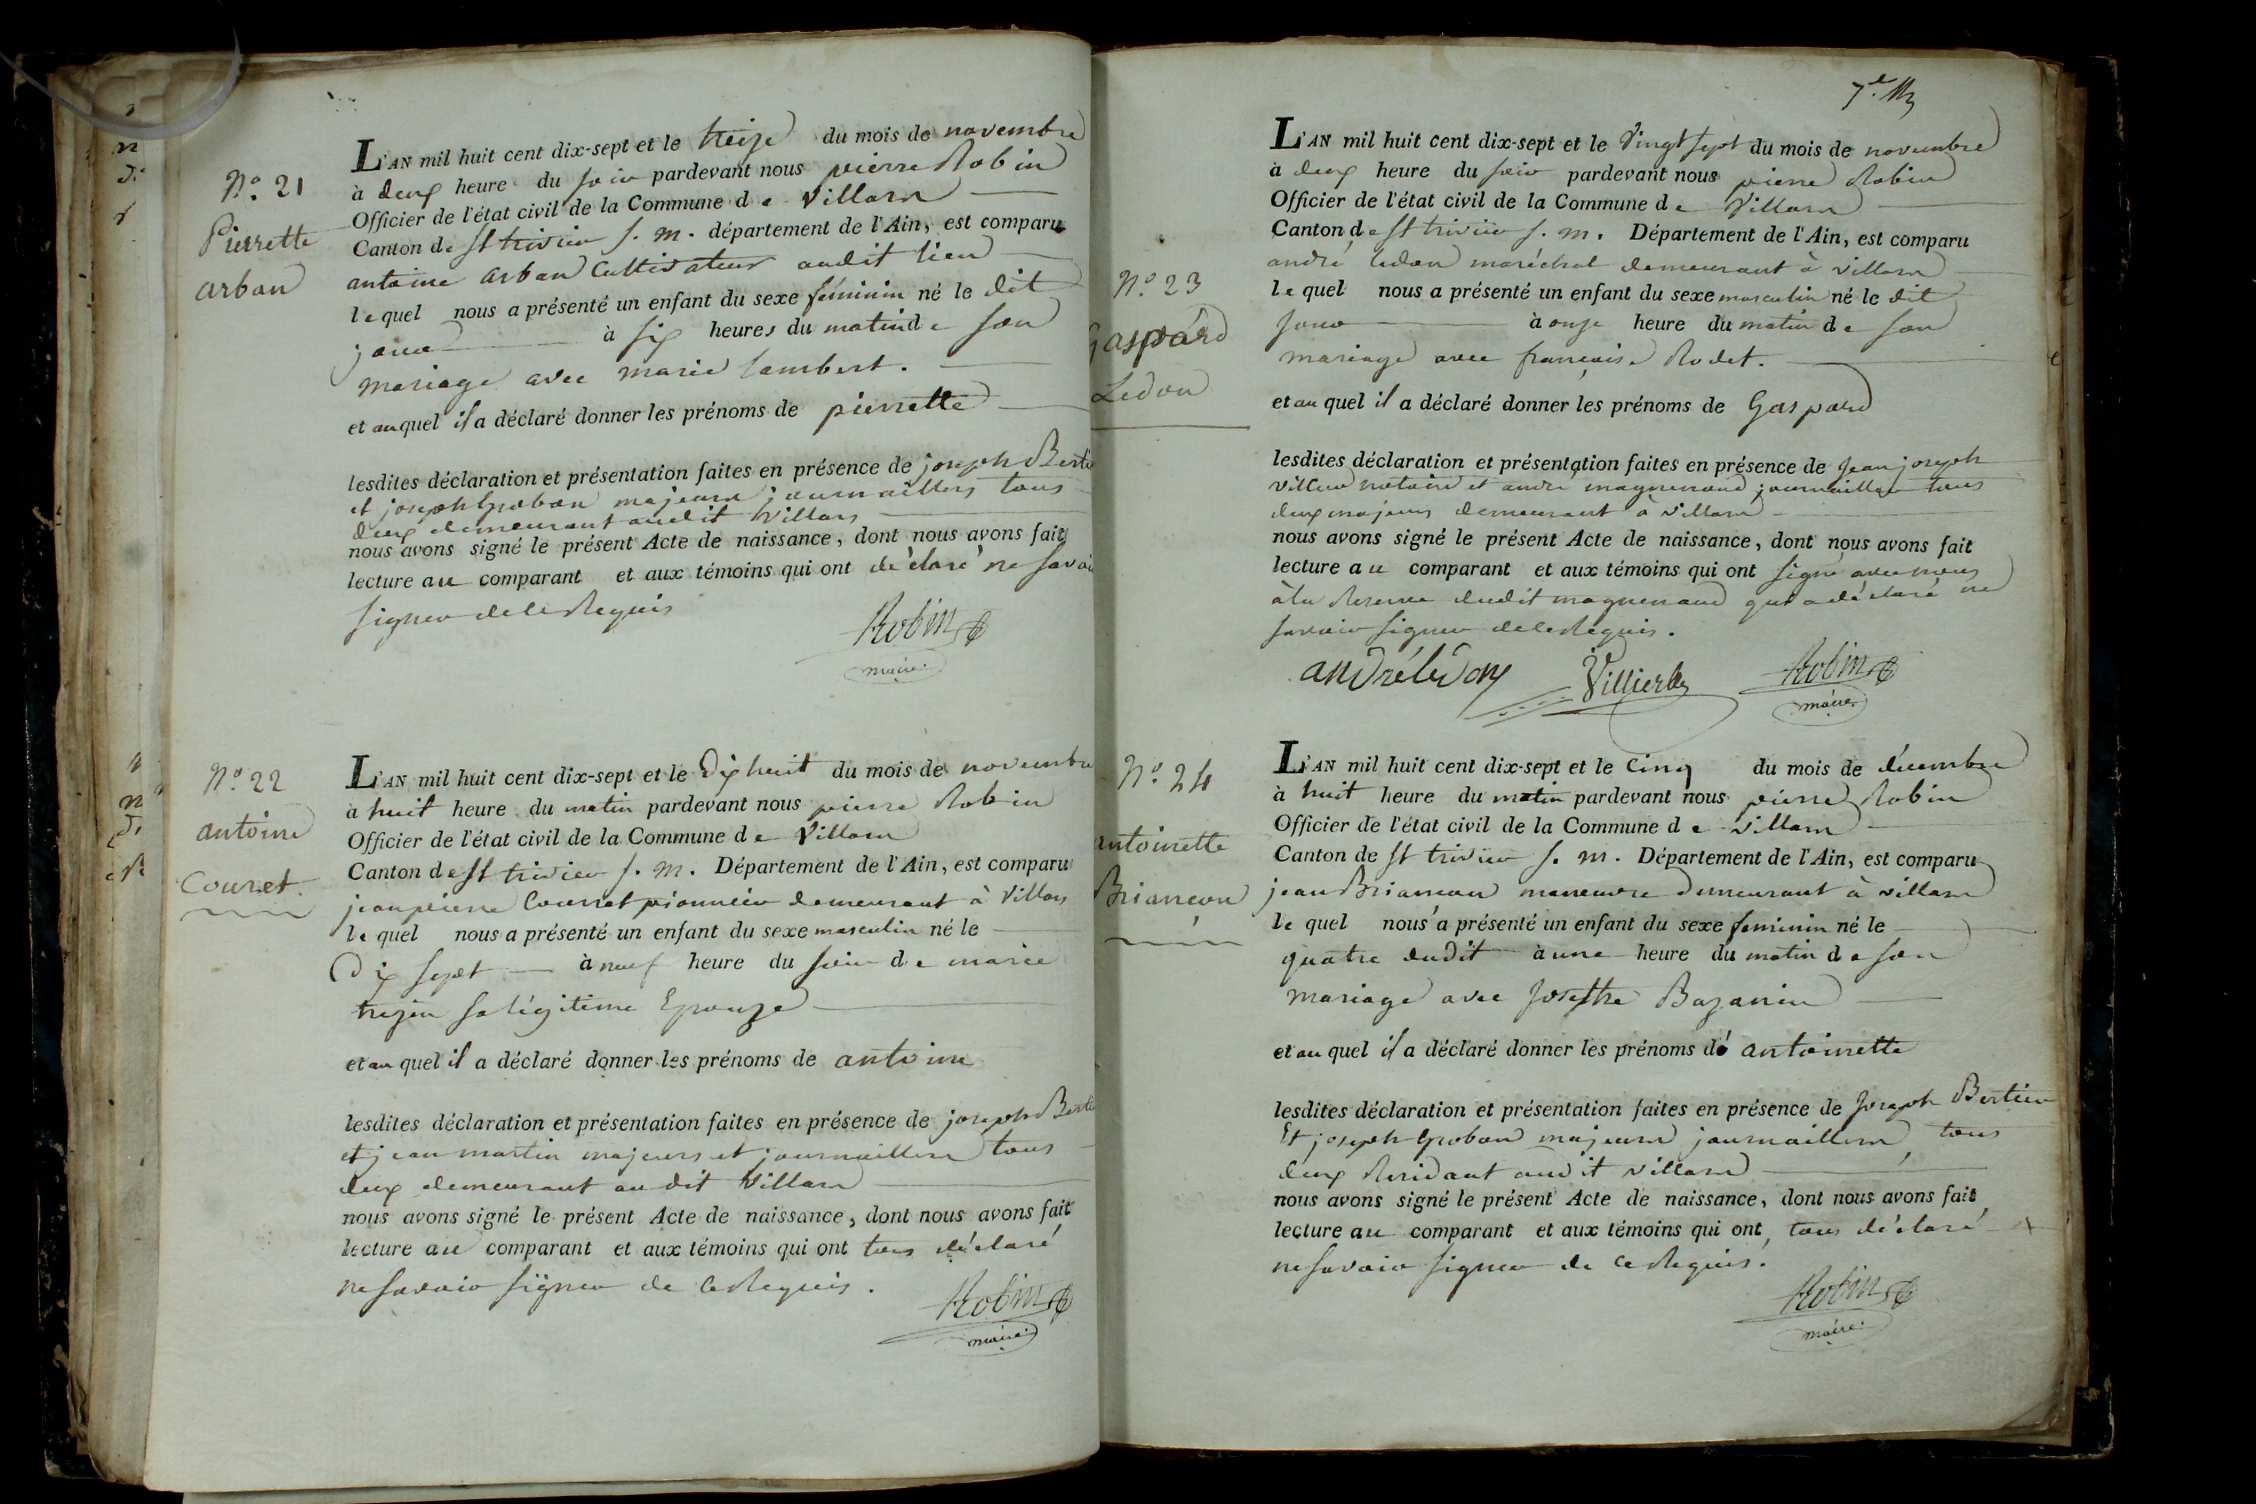 N.° 21
Pierrette
arban
L'AN mil huit cent dix-sept et le treize du mois de novembre
à deux heure du soir pardevant nous pierre Robin
Officier de l'état civil de la Commune de Villars
Canton de St trivier S. M. département de l'Ain, est comparu
antoine arban Cultivateur audit lieu
lequel nous a présenté un enfant du sexe féminin né le dit
jour à six heures du matin de son
mariage avec marie lambert.
et auquel il a déclaré donner les prénoms de pierrette
lesdites déclaration et présentation faites en présence de joseph Bertie
et joseph Groban majeurs journalliers tous
deux demeurant audit Villars
nous avons signé le présent Acte de naissance, dont nous avons fait
lecture au comparant et aux témoins qui ont déclaré ne savoi
signer de ce Requis
Robin
maire.
N.° 22
antoine
Couret.
L'AN mil huit cent dix-sept et le Dix huit du mois de novembre
à huit heure du matin pardevant nous pierre Robin
Officier de l'état civil de la Commune de Villars
Canton de St trivier S. M. Département de l'Ain, est comparu
jean pierre Couret pionnier demeurant à Villars
lequel nous a présenté un enfant du sexe masculin né le
Dix sept à neuf heure du soir de marie
trejen sa légitime Epouze
et au quel il a déclaré donner les prénoms de antoine
lesdites déclaration et présentation faites en présence de joseph Bertie
et jean martin majeurs et journalliers tous
deux demeurant au dit Villars
nous avons signé le présent Acte de naissance, dont nous avons fait
lecture au comparant et aux témoins qui ont tous déclaré
ne savoir signer de ce Requis.
Robin
maire.
7.e
N.° 23
Gaspard
Ledon
L'AN mil huit cent dix-sept et le Vingt sept du mois de novembre
à deux heure du soir pardevant nous pierre Robin
Officier de l'état civil de la Commune de Villars
Canton de St trivier S. M. Département de l'Ain, est comparu
andré ledon maréchal demeurant à Villars
lequel nous a présenté un enfant du sexe masculin né le dit
jour à onze heure du matin de son
mariage avec françoise Rodet.
et au quel il a déclaré donner les prénoms de Gaspard
lesdites déclaration et présentation faites en présence de Jean joseph
Villier notaire et andré magnenand journallier tous
deux majeurs demeurant à Villars
nous avons signé le présent Acte de naissance, dont nous avons fait
lecture au comparant et aux témoins qui ont signé avec nous
à la Reserve dudit magnenand qui a déclaré ne
savoir signer de ce Requis.
andré ledon Villier Robin
maire
N.° 24
antoinette
Briançon
L'AN mil huit cent dix-sept et le Cinq du mois de décembre
à huit heure du matin pardevant nous pierre Robin
Officier de l'état civil de la Commune de Villars
Canton de St trivier S. M. Département de l'Ain, est comparu
jean Briançon maneuvre demeurant à Villars
lequel nous a présenté un enfant du sexe feminin né le
quatre dudit à une heure du matin de son
mariage avec Josephe Bazanin
et au quel il a déclaré donner les prénoms de antoinette
lesdites déclaration et présentation faites en présence de Joseph Bertier
Et joseph Groban majeurs journalliers, tous
deux Residant audit Villars
nous avons signé le présent Acte de naissance, dont nous avons fait
lecture au comparant et aux témoins qui ont, tous déclaré
ne savoir signer de ce Requis.
Robin
maire.